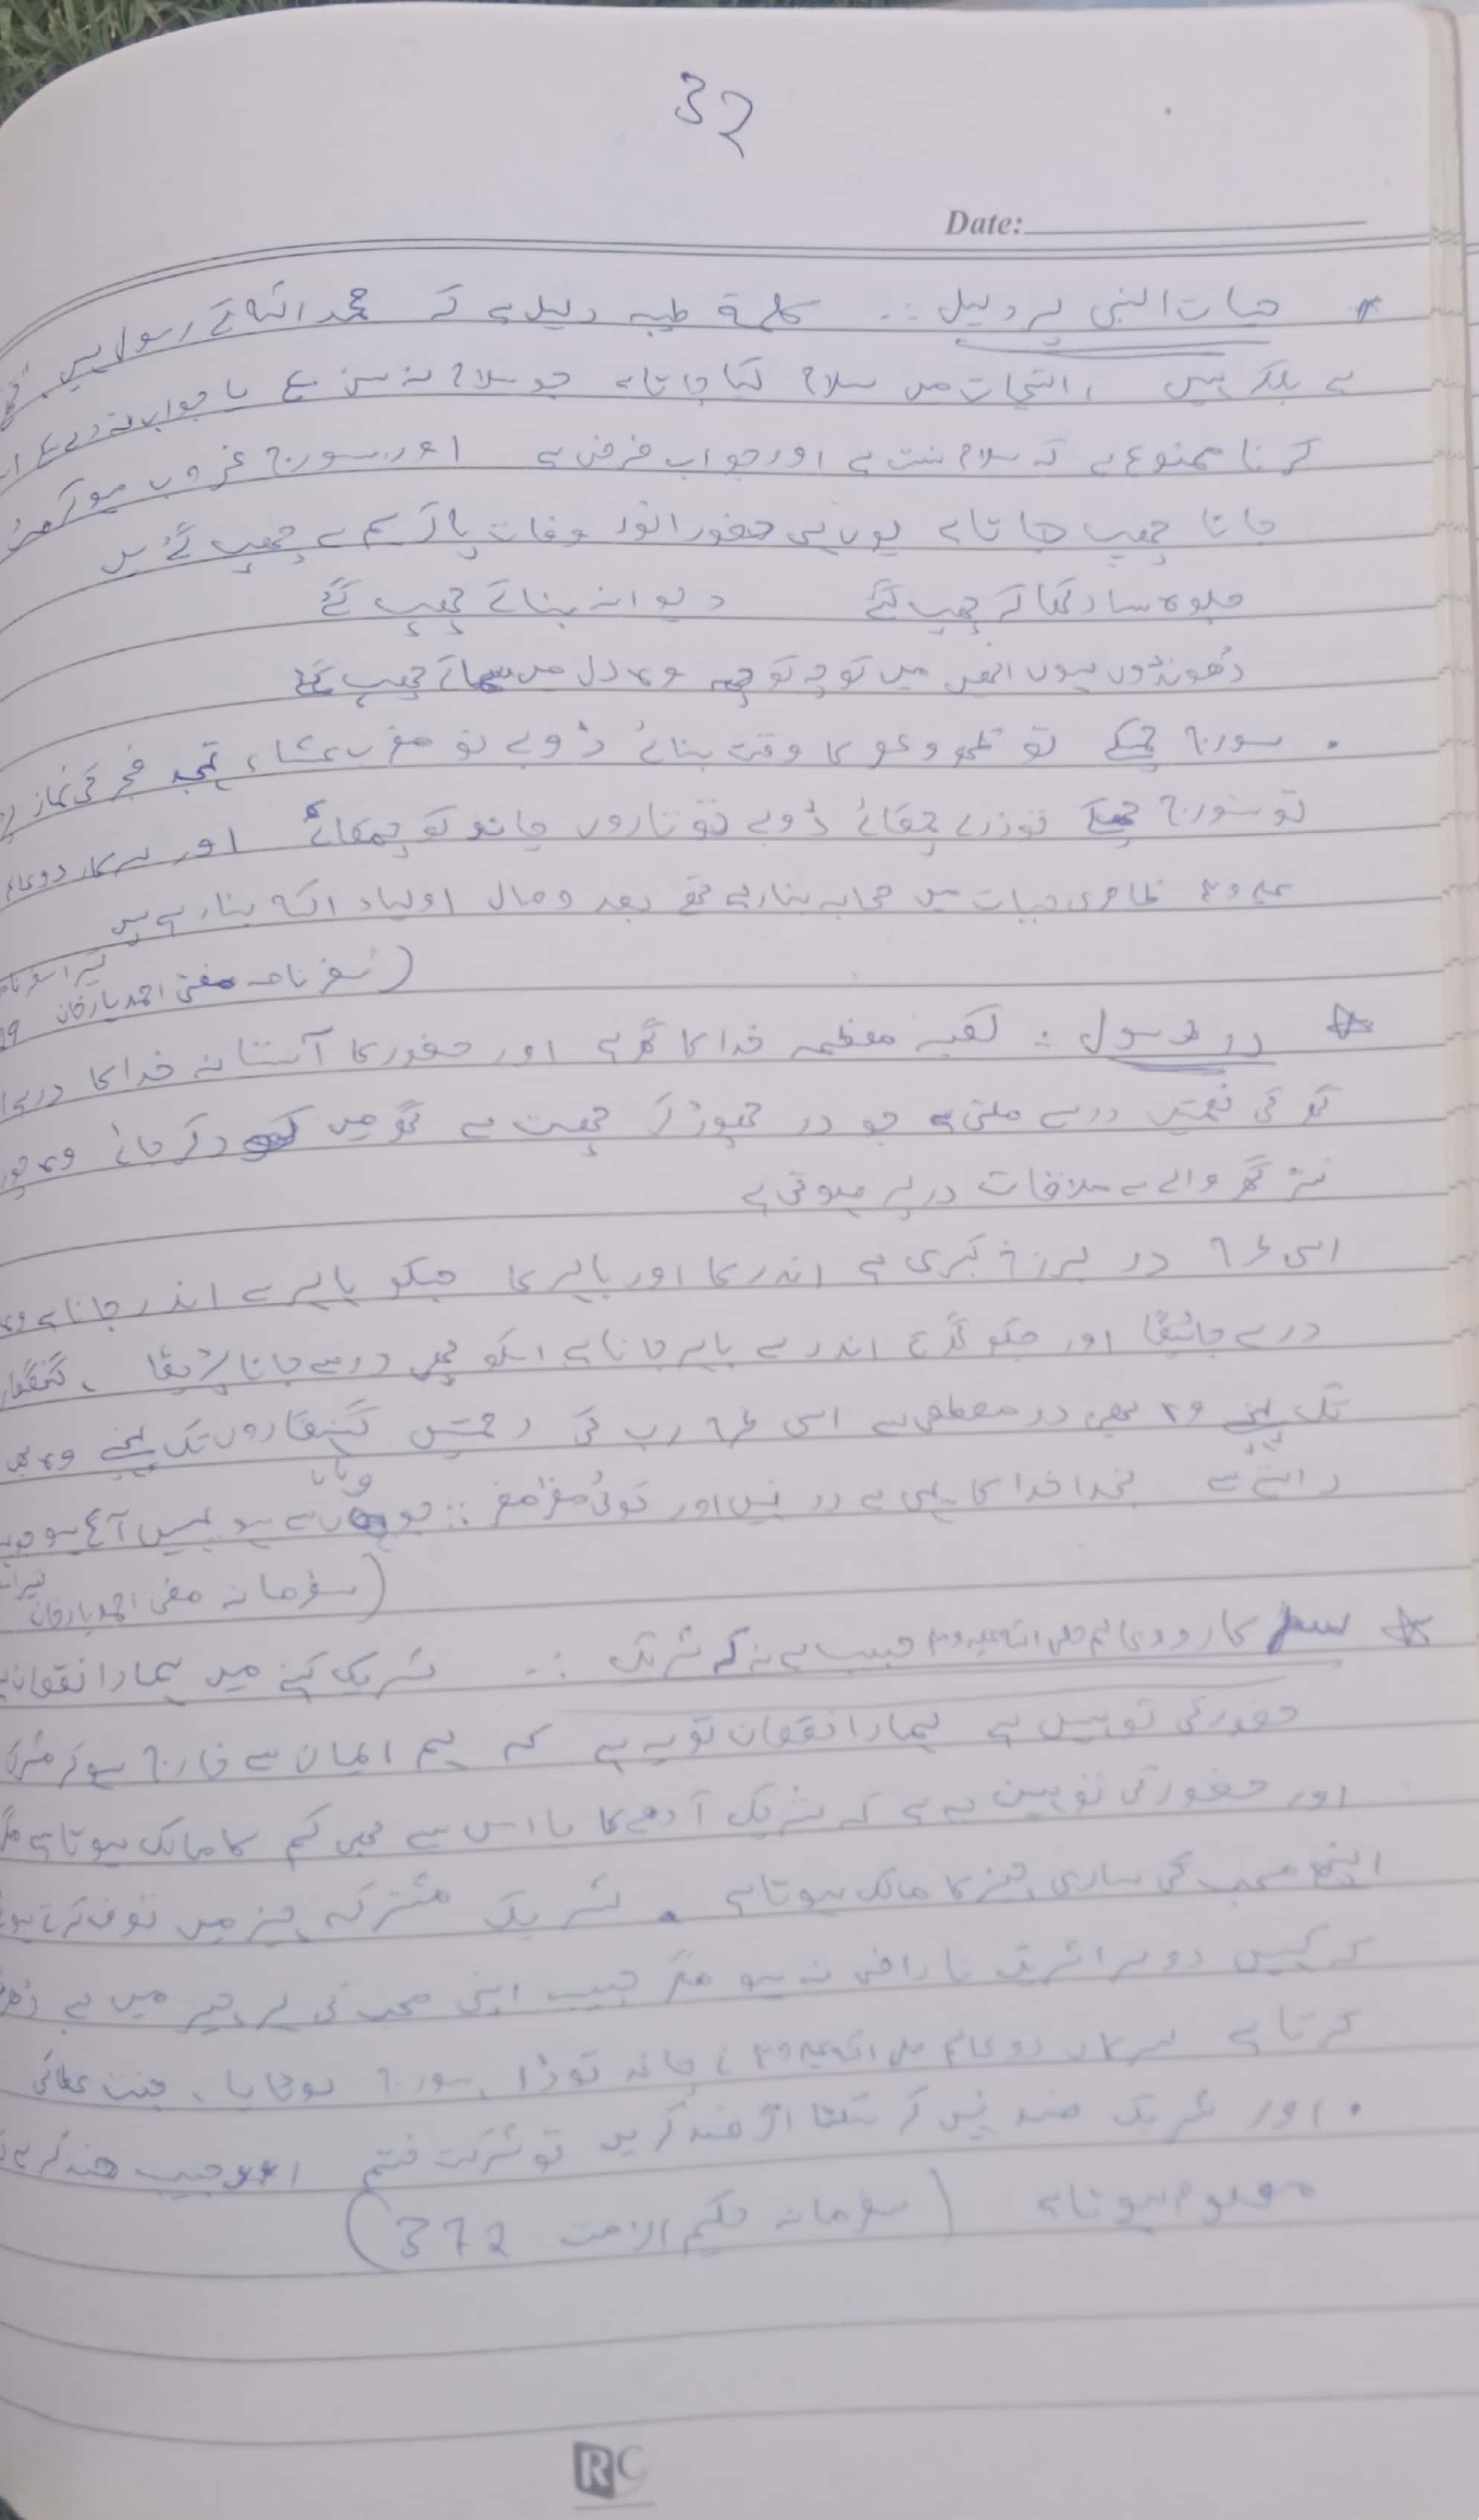 32
Date:
* حیات النبی پر دلیل :. کلمۃ طیبہ دلیل ہے کہ محمد اللہ کے رسول ہیں
ہے بلکہ ہیں ، التحیات میں سلام کیا جاتا ہے جو سلام نہ سن سکے یا جواب نہ دے سکے
کرنا ممنوع ہے کہ سلام سنت ہے اور جواب فرض ہے اور سورج غروب ہو کر
جاتا چھپ جاتا ہے یوں ہی حضور انور وفات پا کر ہم سے چھپ گئے ہیں
جلوہ سا دکھا کے چھپ گئے دیوانہ بنا کے چھپ گئے
ڈھونڈوں ہوں انھیں میں کوچہ کوچہ وہ دل میں سما کے چھپ گئے
. سورج چمکے تو ظہر و عصر کا وقت بنائے ڈوبے تو مغرب عشاء ، تہجد فجر کی نماز
تو سورج چمکے تو ذرے چمکائے ڈوبے تو تاروں چاند کو چمکائے اور سرکار دوعالم
علیہ وسلم ظاہری حیات میں صحابہ بنا رہے تھے بعد وصال اولیاء اللہ بنا رہے ہیں
(سفر نامہ مفتی احمد یار خان
☆ در رسول :. کعبہ معظمہ خدا کا گھر ہے اور حضور کا آستانہ خدا کا در ہے
گھر کی نعمتیں در سے ملتی ہے جو در چھوڑ کر چھت سے گھر میں کود کر جائے وہ چور
نیز گھر والے سے ملاقات در پر ہوتی ہے
اسی طرح در برزخ کبری ہے اندر کا اور باہر کا جسکو باہر سے اندر جانا ہے وہ
در سے جائیگا اور جسکو اندر سے باہر جانا ہے اسکو بھی در سے جانا پڑیگا ، گنہگار
تک پہنچے وہ بھی در مصطفی سے اسی طرح رب کی رحمتیں گنہگاروں تک پہنچے وہ بھی
راستے سے بخدا خدا کا یہی ہے در نہیں اور کوئی مفر مقر :: جو وہاں سے ہو یہیں آ کے ہو جو
(سفرنامہ مفتی احمد یار خان
☆ سرکار دوعالم صلی اللہ علیہ وسلم حبیب ہے نہ کہ شریک :. شریک کہنے میں ہمارا نقصان
حضور کی توہین ہے ہمارا نقصان تو یہ ہے کہ ہم ایمان سے خارج ہو کر مشرک
اور حضور کی توہین یہ ہے کہ شریک آدھے کا یا اس سے بھی کم کا مالک ہوتا ہے
اپنے محب کی ساری چیز کا مالک ہوتا ہے . شریک مشترکہ چیز میں
کہ کہیں دوسرا شریک ناراض نہ ہو مگر حبیب اپنی محب کی ہر چیز میں بے
کرتا ہے سرکار دوعالم صلی اللہ علیہ وسلم نے چاند توڑا ، سورج لوٹایا ، جنت عطا کی
. اور شریک ضد نہیں کر سکتا اگر ضد کریں تو شرکت ختم اور حبیب ضد کرے
معلوم ہوتا ہے (سفرنامہ حکیم الامت 372)
RC